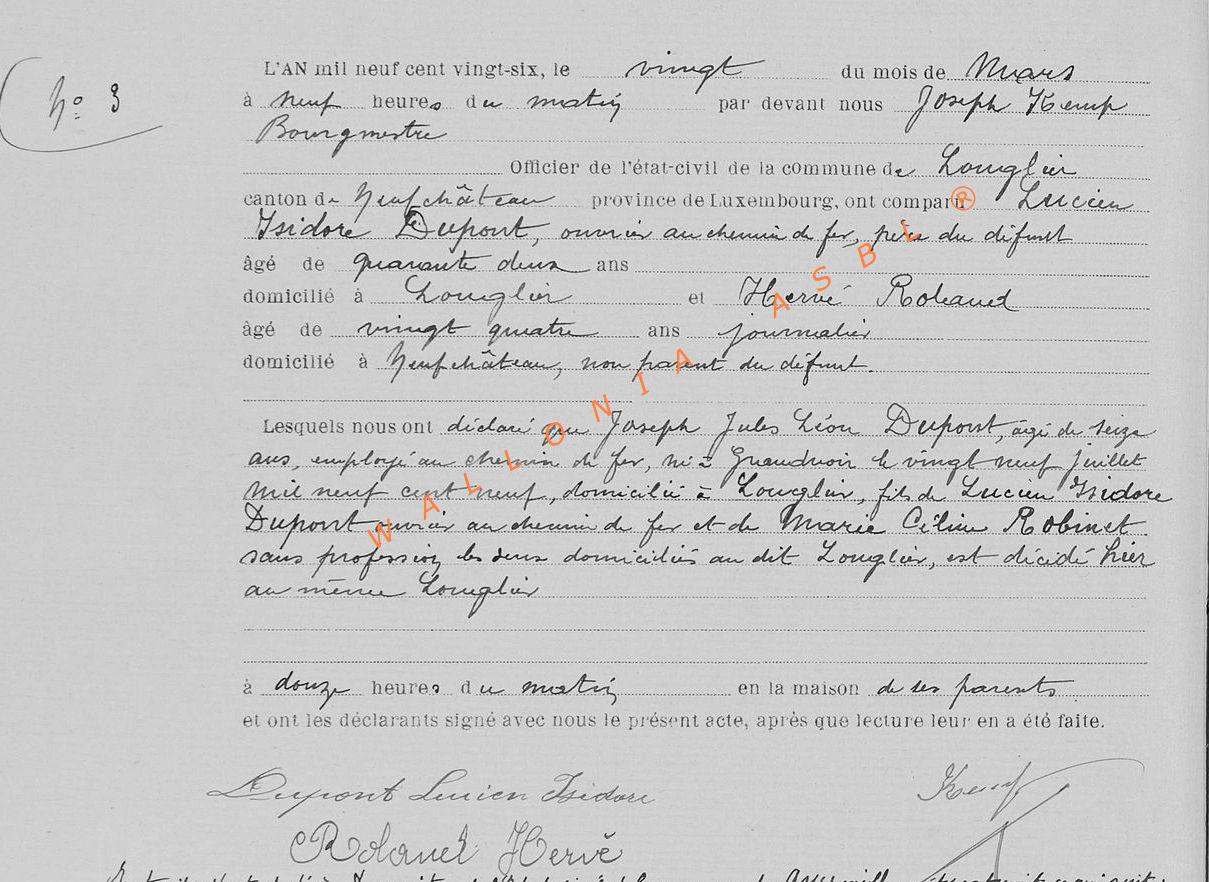 No 3
L'AN mil neuf cent vingt-six, le vingt du mois de Mars
à neuf heures du matin par devant nous Joseph Kemp
Bourgmestre
Officier de l'état-civil de la commune de Longlier
canton de Neufchâteau province de Luxembourg, ont comparu Lucien
Isidore Dupont, ouvrier au chemin de fer, père du défunt
âgé de quarante deux ans
domicilié à Longlier et Hervé Roland
âgé de vingt quatre ans journalier
domicilié à Neufchâteau, non parent du défunt.
Lesquels nous ont déclaré que Joseph Jules Léon Dupont, âgé de seize
ans, employé au chemin de fer, né à Grandvoir le vingt neuf Juillet
mil neuf cent neuf, domicilié à Longlier, fils de Lucien Isidore
Dupont ouvrier au chemin de fer et de Marie Céline Robinet
sans profession les deux domiciliés au dit Longlier, est décédé hier
au même Longlier
à douze heures du matin en la maison de ses parents
et ont les déclarants signé avec nous le présent acte, après que lecture leur en a été faite.
Dupont Lucien Isidore Kemp
Roland Hervé
WALLONIA ASBL ®